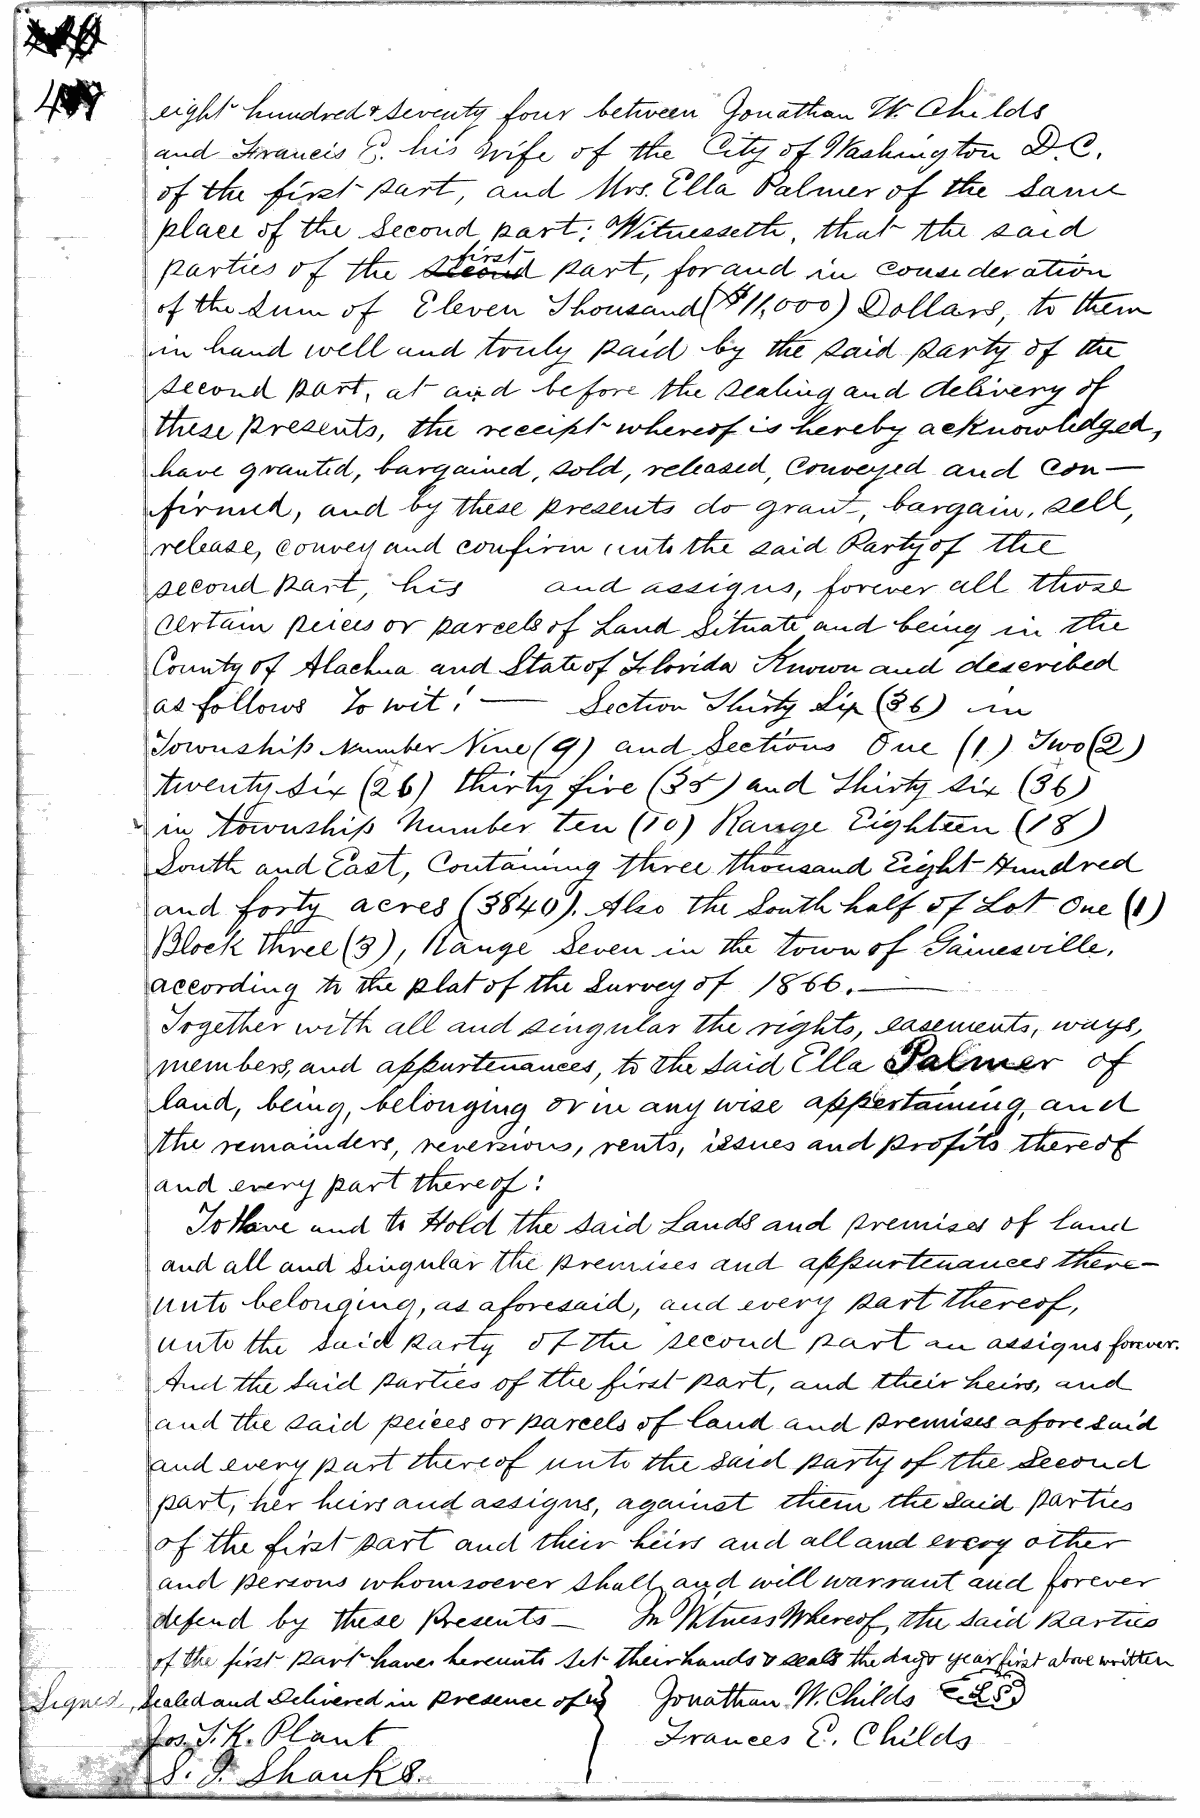 eight hundred & seventy four between Jonathan W. Childs
and Francis E. his wife of the City of Washington D.C.
of the first part, and Mrs. Ella Palmer of the same
place of the Second part; Witnesseth, that the said
parties of the first part, for and in consideration
of the Sum of Eleven Thousand ($11,000) Dollars, to them
in hand well and truly paid by the said party of the
second part, at and before the sealing and delivery of
these presents, the receipt whereof is hereby acknowledged,
have granted, bargained, sold, released, conveyed and con—
firmed, and by these presents do grant, bargain, sell,
release, convey and confirm unto the said Party of the
second part, his and assigns, forever all those
certain peices or parcels of Land Situate and being in the
County of Alachua and State of Florida Known and described
as follows To wit: — Section Thirty Six (36) in
Township Number Nine (9) and Sections One (1) Two (2)
twenty six (26) thirty five (35) and thirty six (36)
in township Number ten (10) Range Eighteen (18)
South and East, Containing three thousand Eight Hundred
and forty acres (3840). Also the South half of Lot One (1)
Block three (3), Range Seven in the town of Gainesville,
according to the plat of the Survey of 1866. —
Together with all and singular the rights, easements, ways,
members, and appurtenances, to the said Ella Palmer of
land, being, belonging or in any wise appertaining, and
the remainders, reversions, rents, issues and profits thereof
and every part thereof:
To Have and to Hold the said Lands and premises of land
and all and Singular the premises and appurtenances there—
unto belonging, as aforesaid, and every part thereof,
unto the said party of the second part an assigns forever.
And the said parties of the first part, and their heirs, and
and the said peices or parcels of land and premises aforesaid
and every part thereof unto the said party of the Second
part, her heirs and assigns, against them the said parties
of the first part and their heirs and all and every other
and persons whomsoever shall and will warrant and forever
defend by these Presents — In Witness Whereof, the said parties
of the first part have hereunto set their hands & seals the day & year first above written
Signed, Sealed and Delivered in presence of us } Jonathan W. Childs (L.S.)
Jos. T. K. Plant Frances E. Childs
S. J. Shanks.